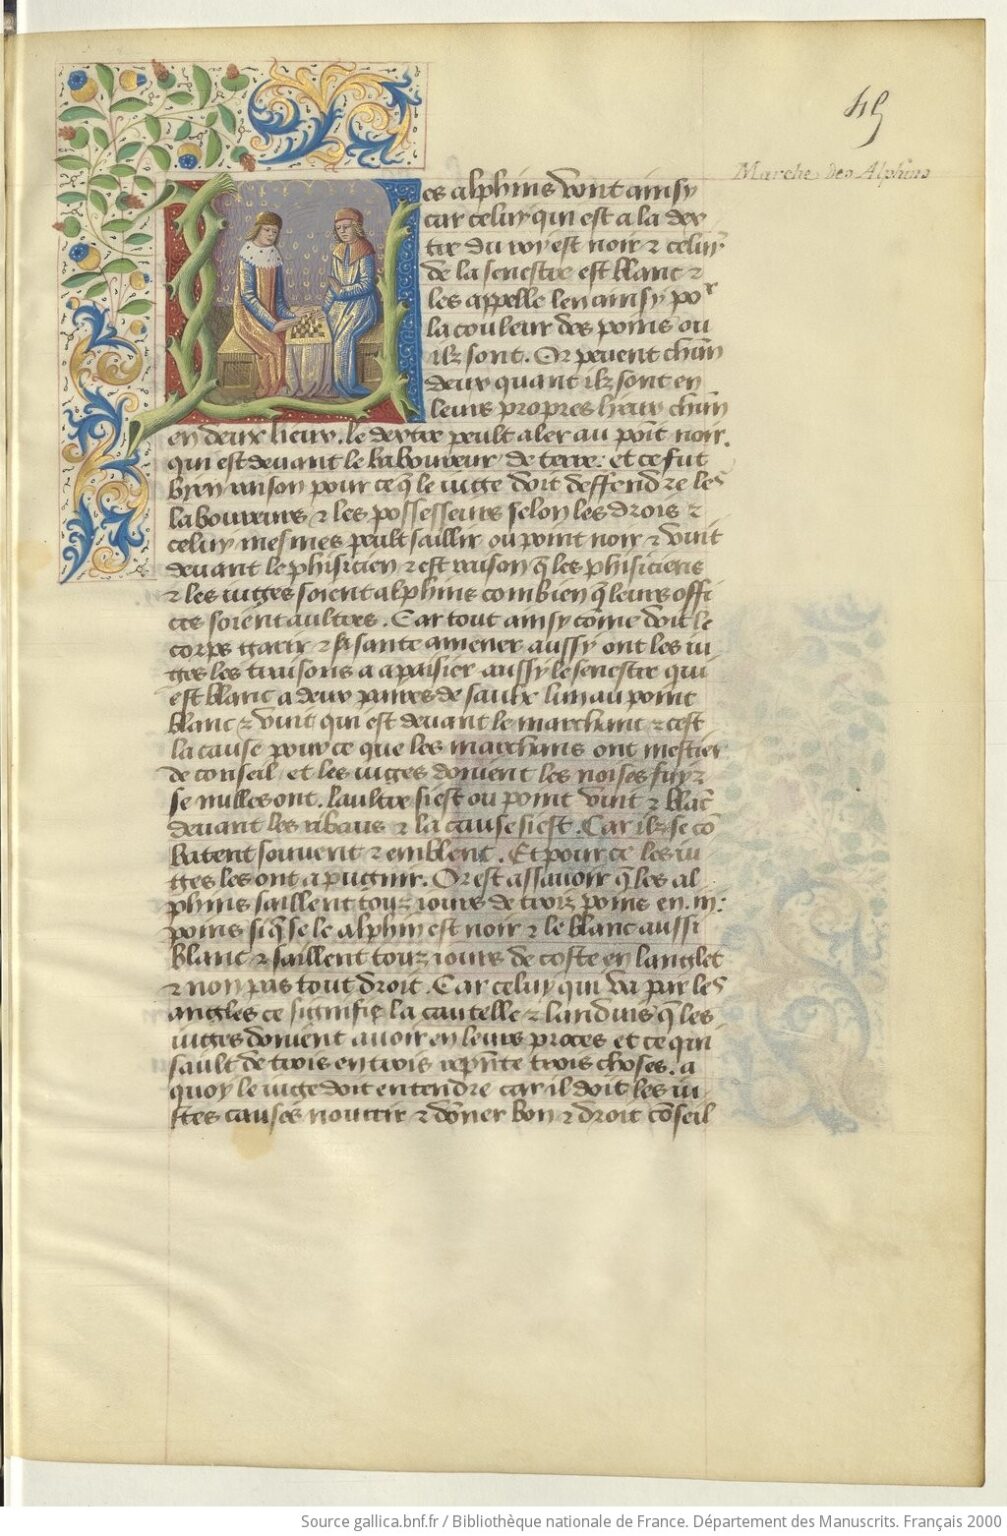 45
Marche des Alphins
es alphins vont ainsy
car celuy qui est a la dex
tre du roy est noir ⁊ celuy
de la senestre est blanc ⁊
les appelle len ainsy poʳ
la couleur des poins ou
ilz sont. Or peuent chūn
deux quant ilz sont en
leurs propres lieux chūn
en deux lieux. le dextre peult aler au point noir.
qui est deuant le laboureur de terre. et ce fut
byen raison pour ce q̄ le iuge doit deffendre les
laboureurs ⁊ les possesseurs selon les drois ⁊
celuy mesmes peult saillir ou point noir ⁊ vuit
deuant le phisicien ⁊ est raison q̄ les phisiciens
⁊ les iuges soient alphins combien q̄ leurs offi
ces soient aultres. Car tout ainsy cōme doit le
corps garir ⁊ sa sante amener aussy ont les iu
ges les traisons a apaisier aussy le senestre qui
est blanc a deux paires de saulx lun au point
blanc ⁊ vuit qui est deuant le marchant ⁊ cest
la cause pour ce que les marchans ont mestier
de conseil et les iuges doiuent les noises fuyr
se nulles ont. laultre si est ou point vuit ⁊ blāc
deuant les ribaus ⁊ la cause si est. Car ilz se cō
batent souuent ⁊ emblent. Et pour ce les iu
ges les ont a pugnir. Or est assauoir q̄ les al
phins saillent touz iours de troiz poins en .iii.
poins si q̄ se le alphin est noir ⁊ le blanc aussi
blanc ⁊ saillent touz iours de coste en langlet
⁊ non pas tout droit. Car celuy qui va par les
angles ce signifie la cautelle ⁊ landuis q̄ les
iuges doiuent auoir en leurs proces et ce qui
sault de trois en trois rep̄nte trois choses. a
quoy le iuge doit entendre car il doit les iu
stes causes nourrir ⁊ dōner bon ⁊ droit cōseil
Source gallica.bnf.fr / Bibliothèque nationale de France. Département des Manuscrits. Français 2000